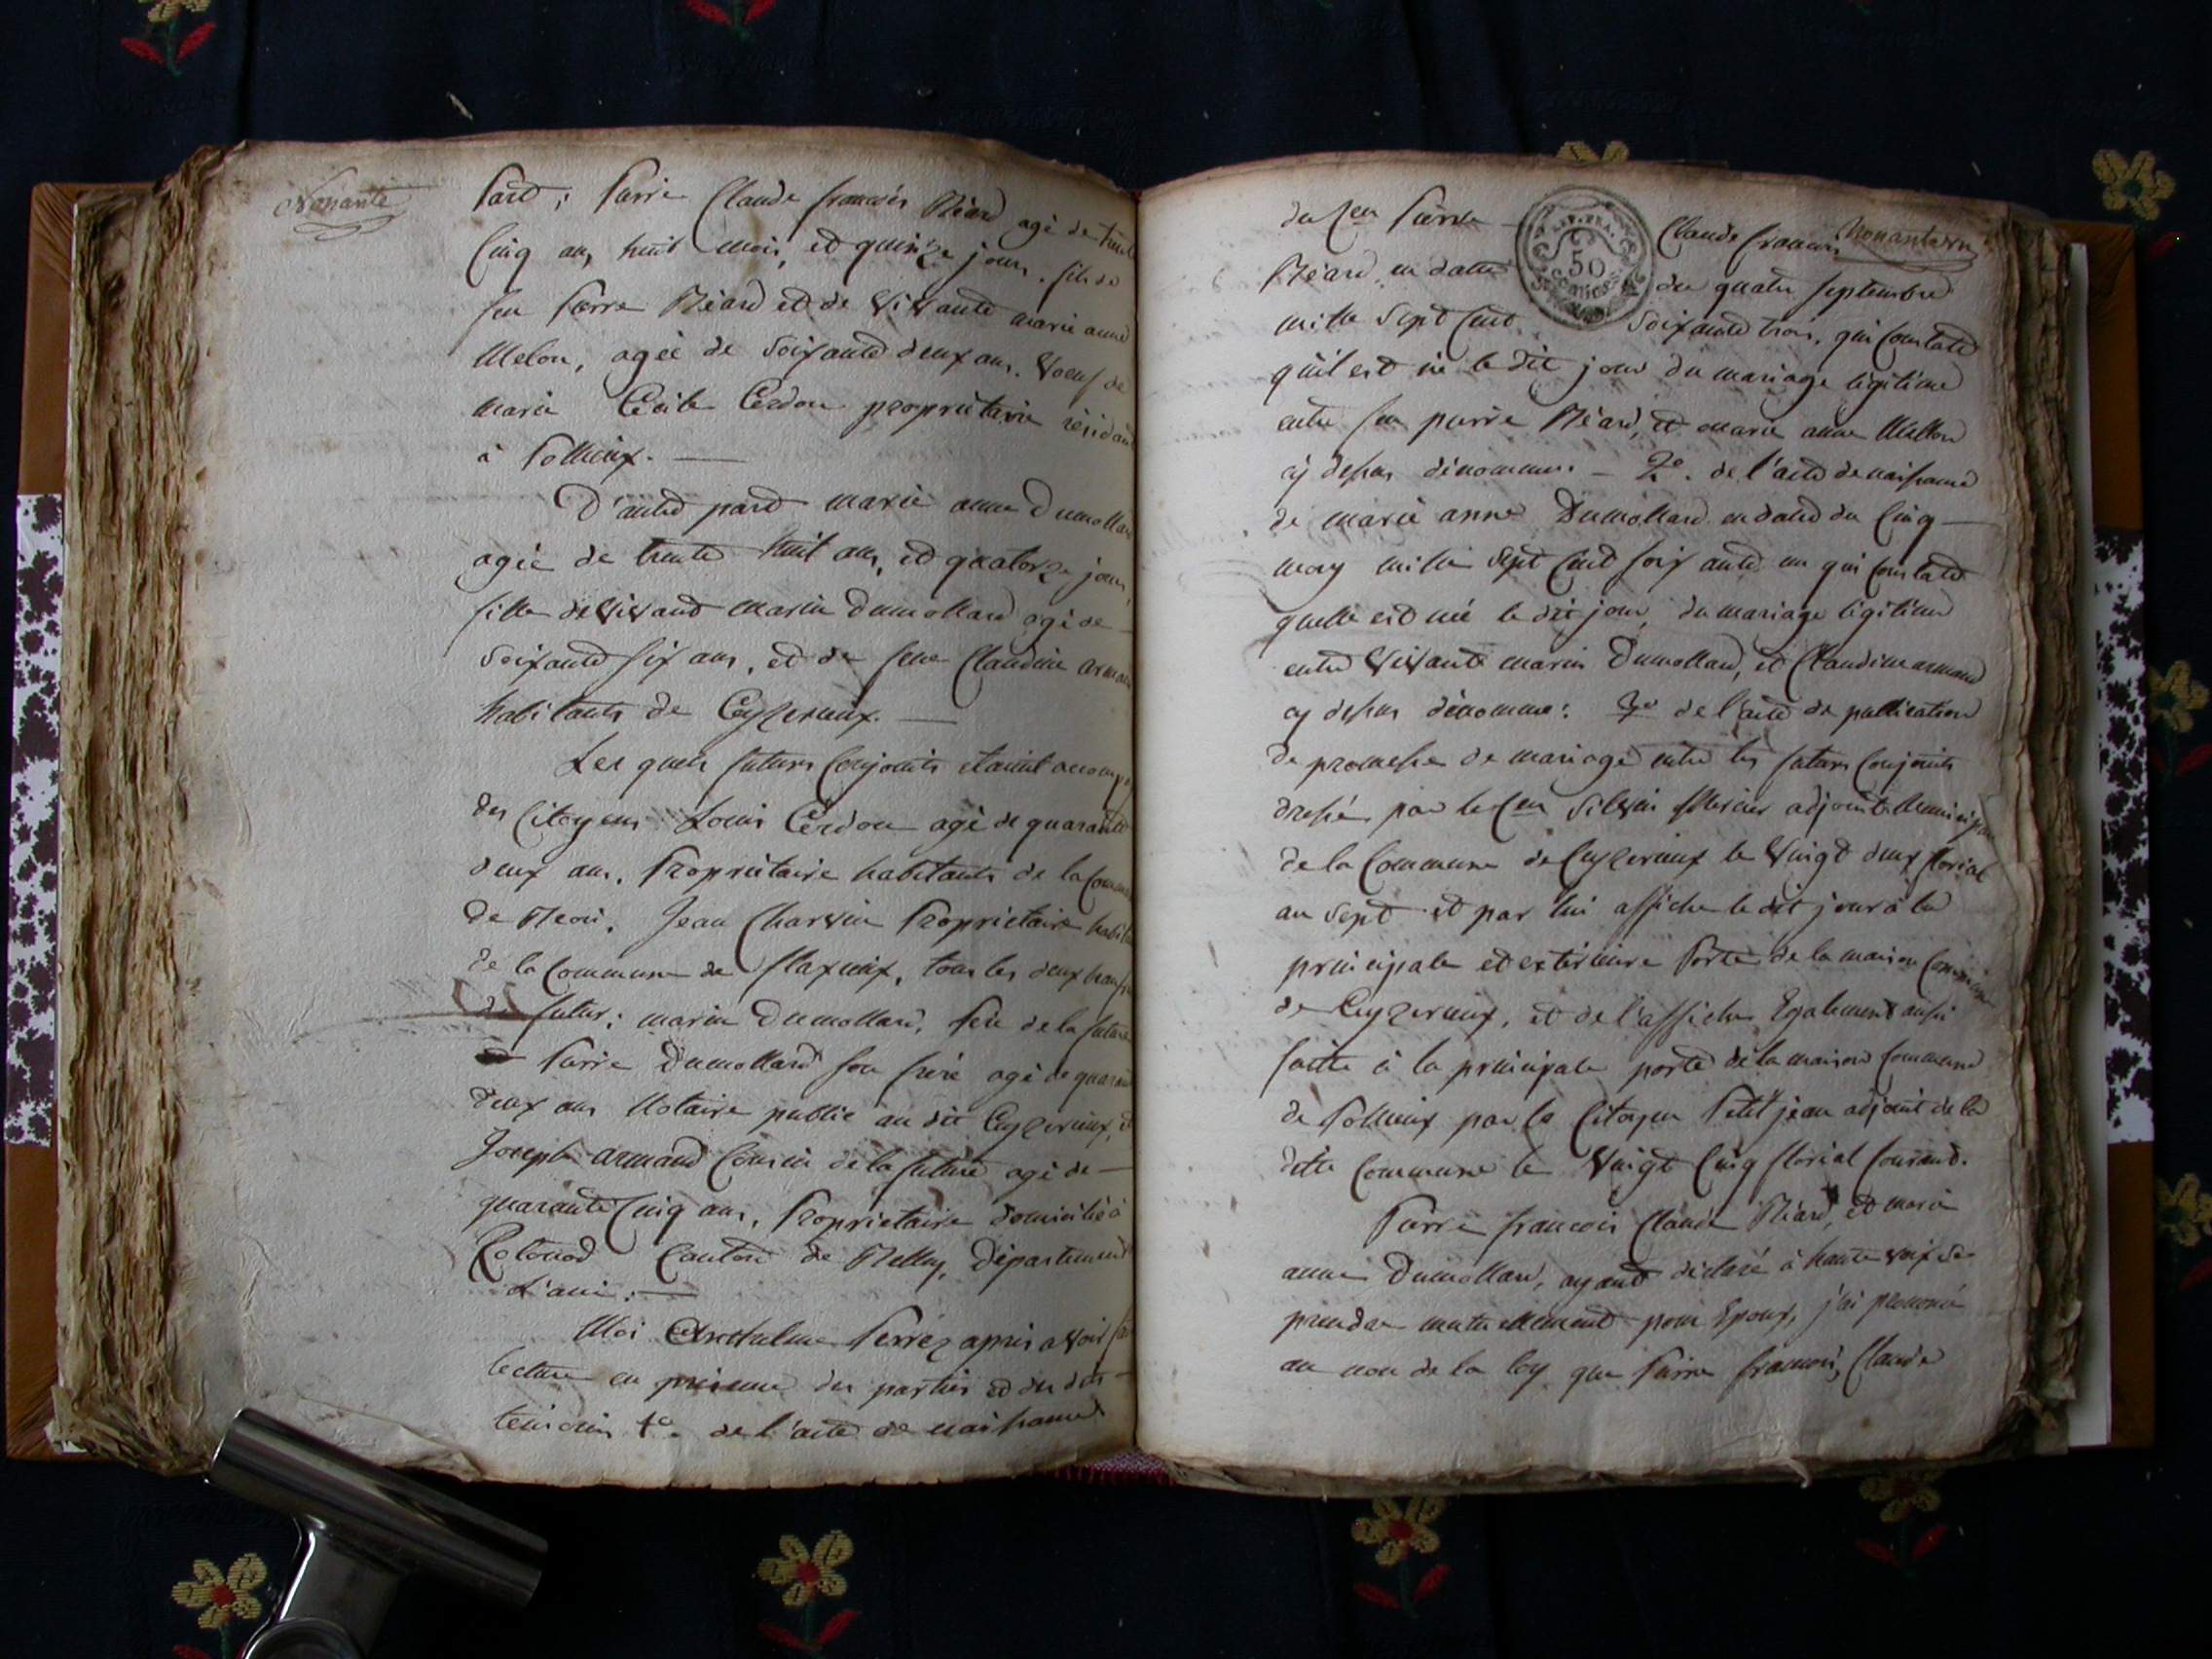 Nonante
Part ; Pierre Claude francois Réard agé de trente
Cinq ans, huit mois, et quinze jours. fils de
feu Pierre Réard et de Vivante marie anne
Melon, agée de Soixante deux ans. Voeuf de
marie Cécile Cerdon proprietaire résidant
à Pollieux. —
D'autre part marie anne Dumollard
agée de trente huit ans, et quatorze jours
fille de Vivant marin Dumollard agé de
Soixante six ans, et de feue Claudine armand
habitants de Ceyzerieux. —
Les quels futurs Conjoints étaient accomp
des Citoyens Louis Cerdon agé de quarante
deux ans, Proprietaire habitants de la Commune
de Jean Charvin Proprietaire
de la Commune de flaxieux, tous les deux
du futur ; marin Dumollard, Pere de la future
Pierre Dumollard son frere agé de quarante
deux ans Notaire public au dit Ceyzerieux, et
Joseph armand Cousin de la future agé de —
quarante Cinq ans, Proprietaire domicilié à
Rotonod Canton de Belley, Departement
L'ain. —
Moi Anthelme Perrez apres avoir fait
lecture en presence des parties et des dits
temoins 1e. de l'acte de naissance
Nonante un
du Cen Pierre Claude francois
REP. FRA.
50
CENTIMES
Réard en datte du quatre septembre
mille Sept Cent Soixante trois, qui Constate
qu'il est né le dit jour du mariage légitime
entre feu pierre Réard, et marie anne Mellon
cy dessus dénommés. — 2e. de l'acte de naissance
de marie anne Dumollard en date du Cinq —
may mille Sept Cent soixante un qui Constate
quelle est née le dit jour, du mariage légitime
entre Vivante marin Dumollard, et Claudine armand
cy dessus dénommé : 3e de l'acte de publication
de promesse de mariage entre les futurs Conjoints
dressée par le Cen Silvin Mercier adjoint Municipal
de la Commune de Ceyzerieux le Vingt deux florial
an Sept et par lui affiché le dit jour à la
principale et exterieure Porte de la maison Commune
de Ceyzerieux, et de l'affiche Egalement aussi
faitte à la principale porte de la maison Commune
de Pollieux par le Citoyen Petit jean adjoint de la
ditte Commune le Vingt Cinq florial Courand.
Pierre francois Claude Réard, et marie
anne Dumollard, ayant déclaré à haute voix se
prendre mutuellement pour Epoux, j'ai prononcé
au nom de la loy que Pierre francois, Claude